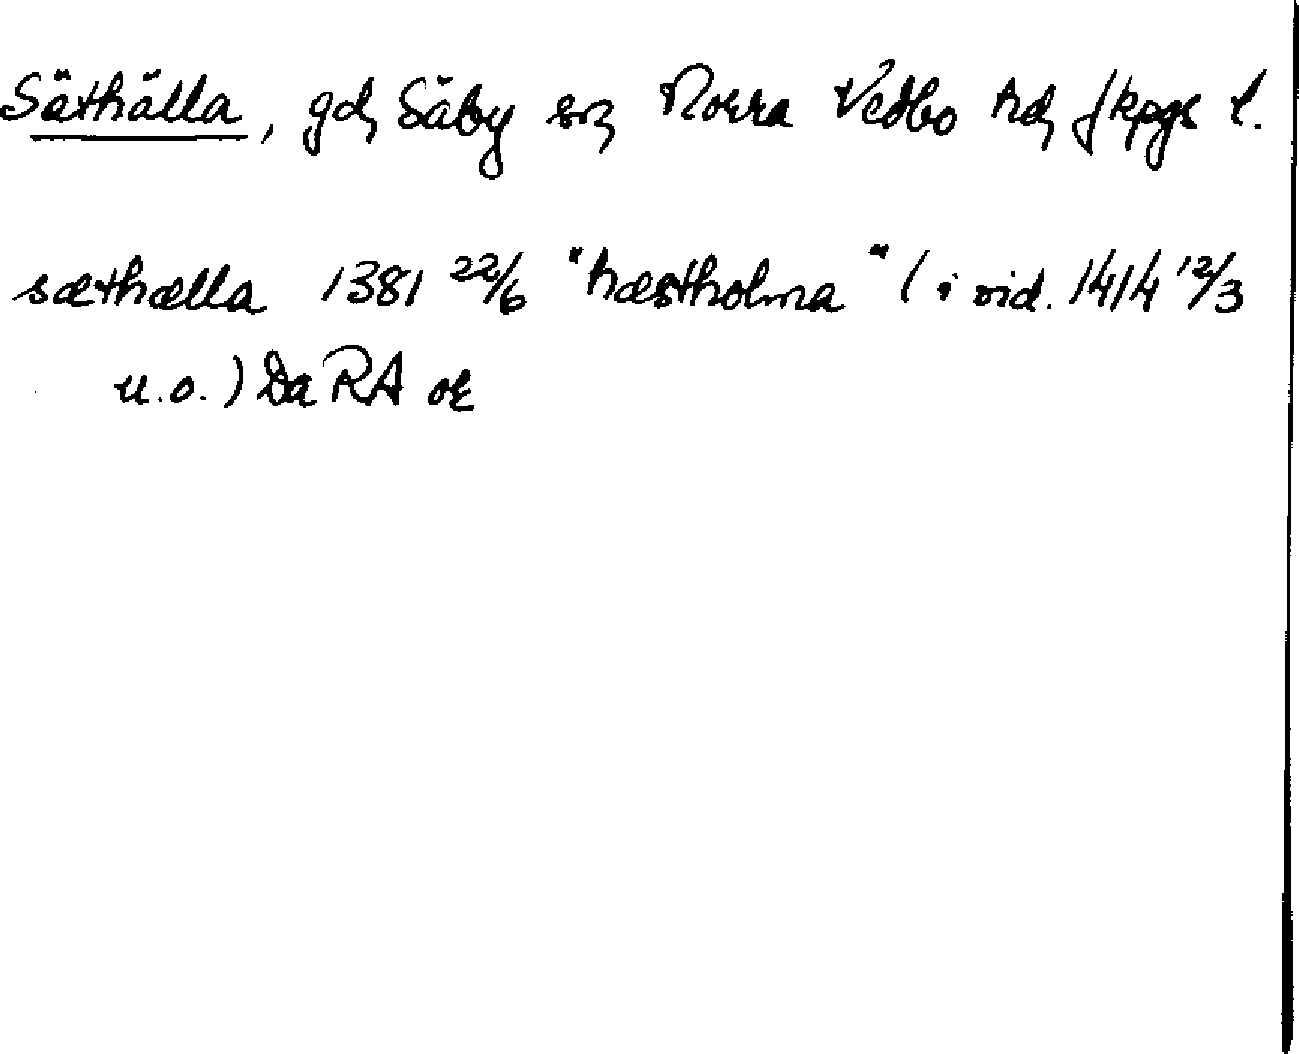 Säthälla, gd, Säby sn, Norra Vedbo hd, Jkpgs l.
sæthælla 1381 22/6 "hæstholma" (i vid. 1414 12/3
u.o.) Da RA or